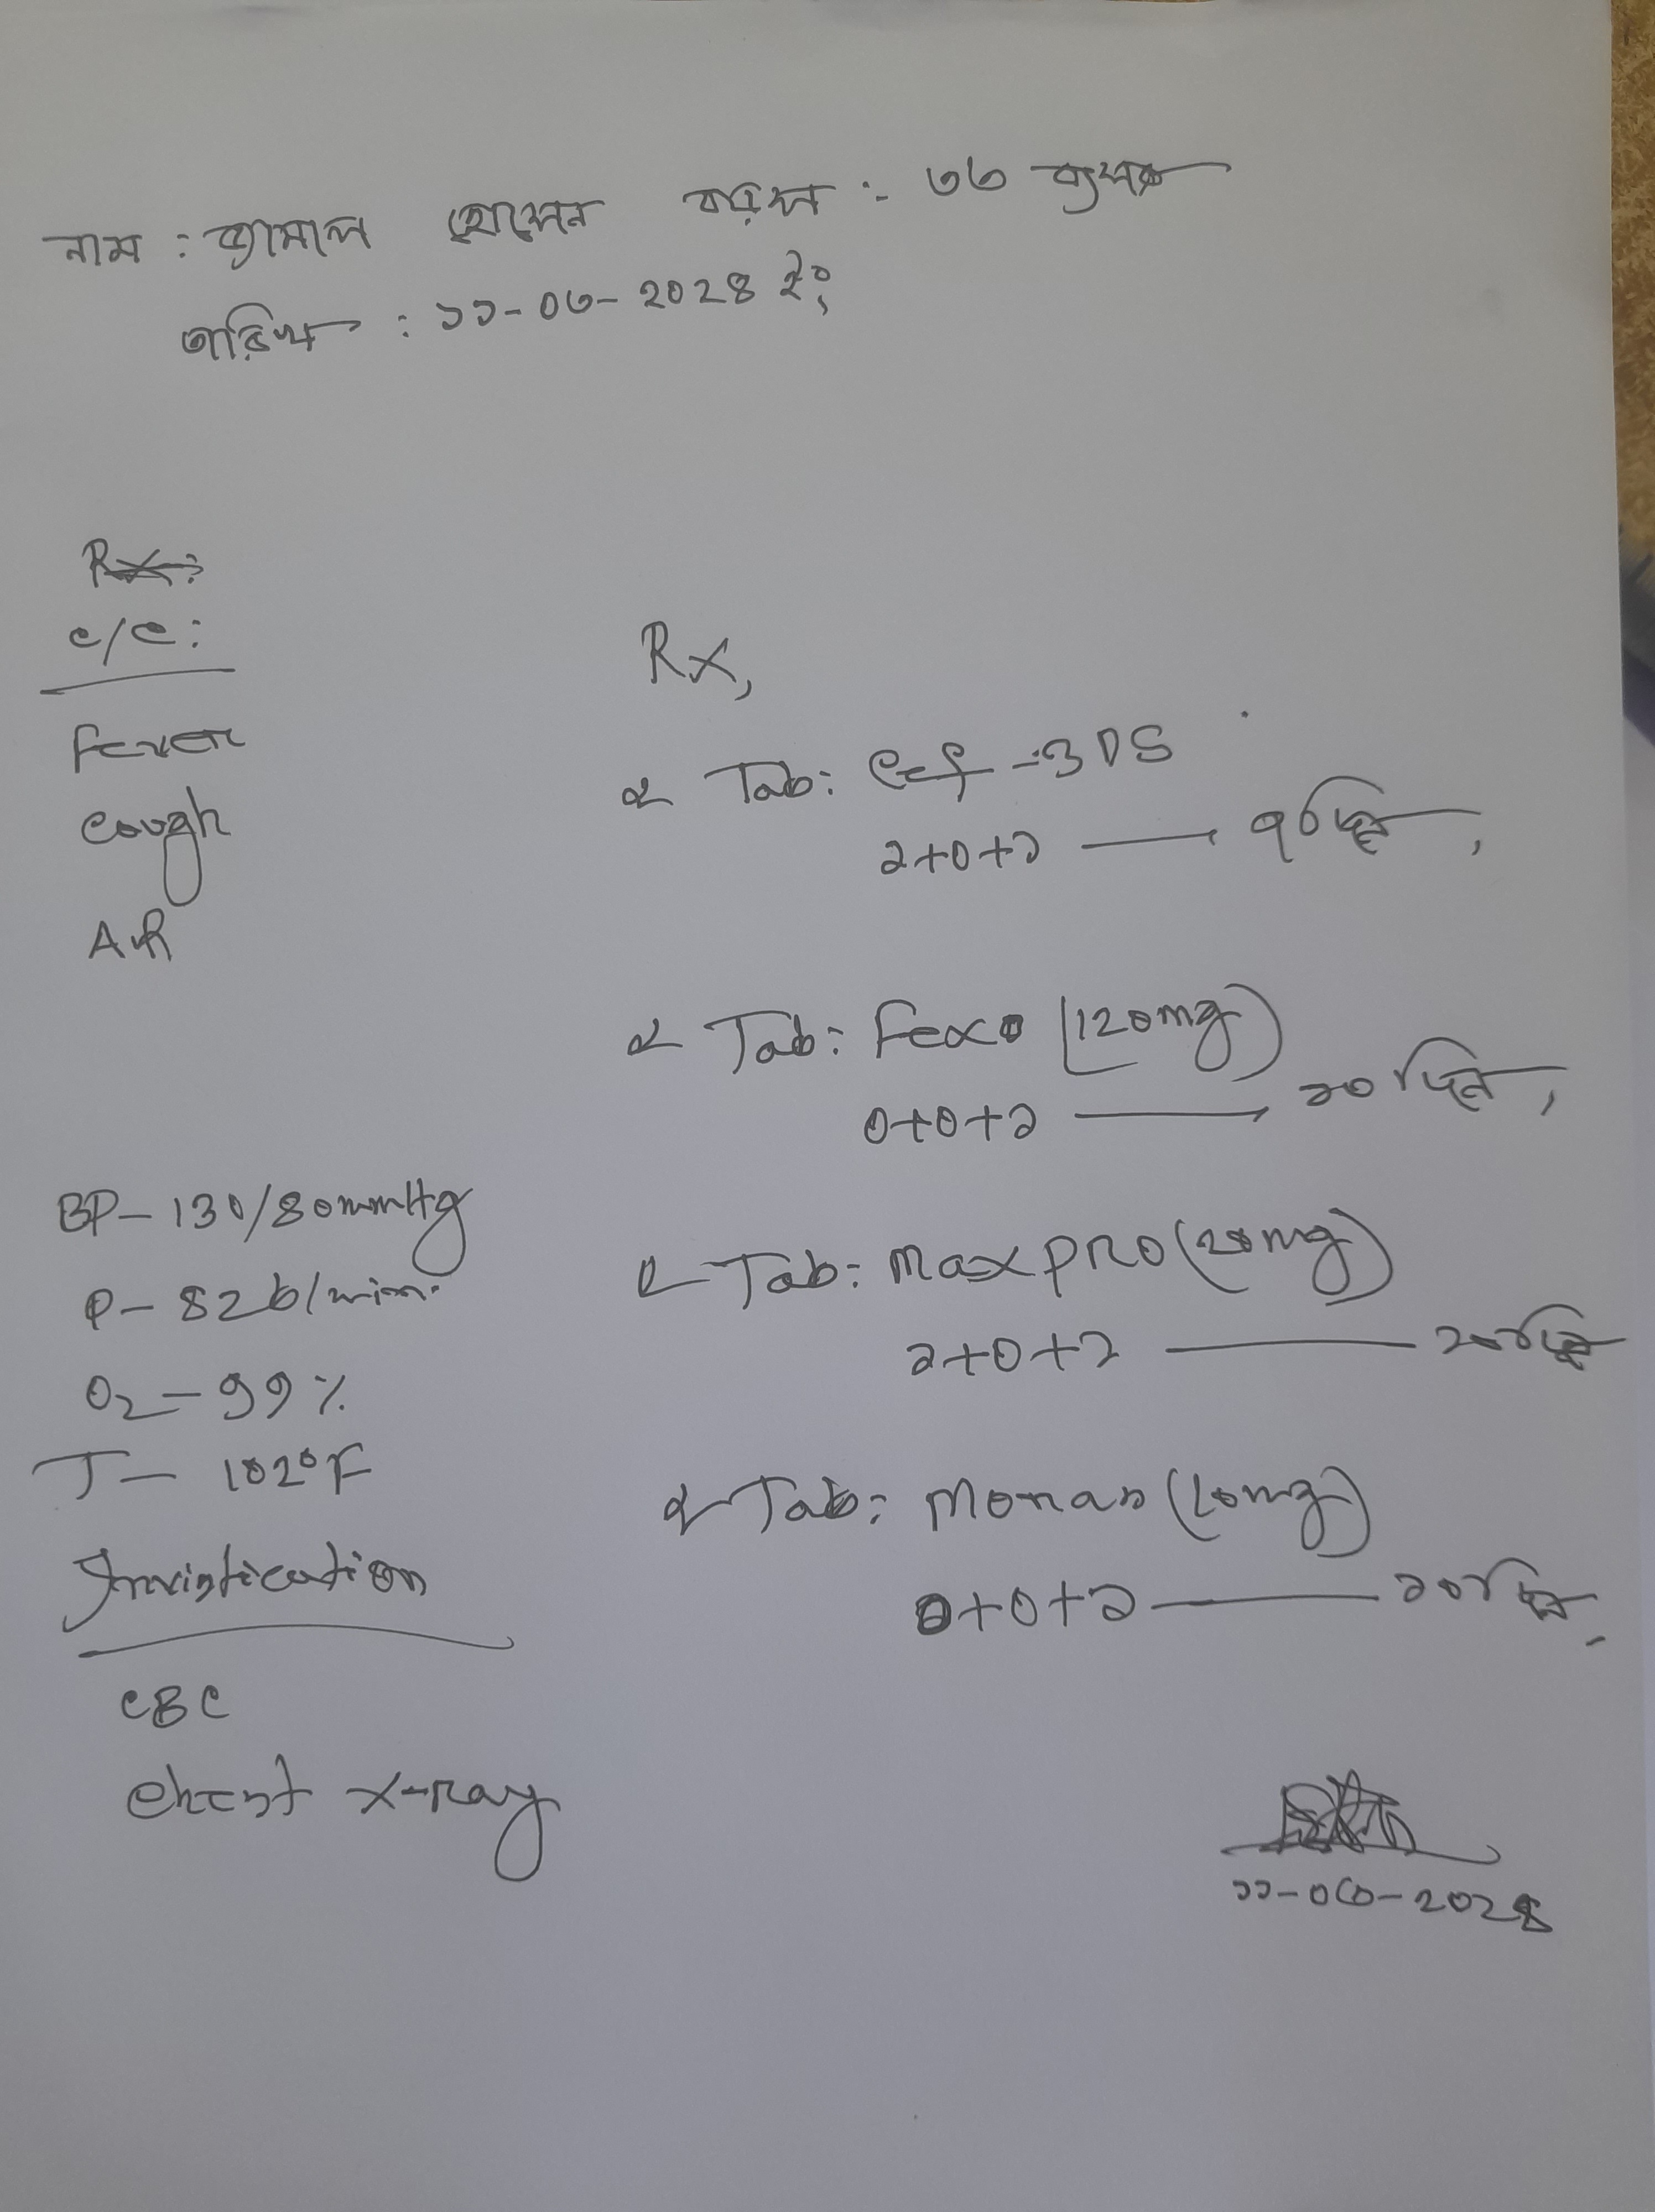 নাম : জামাল হোসেন বয়স :- ৩৬ বৎসর
তারিখ : ১১-০৬-২০২৪ ইং
Rx:
c/c:
Fever
Cough
AR
BP- 130/80mmHg
P- 82b/min.
O2 - 99%
T- 102°F
Invistication
CBC
Chest X-ray
Rx,
Tab: Cef -3 DS
১+০+১ — ৭ দিন,
Tab: Fexo (120mg)
০+০+১ — ১০ দিন,
Tab: Maxpro (20mg)
১+০+১ — ২০ দিন
Tab: Monas (10mg)
০+০+১ — ১০ দিন,